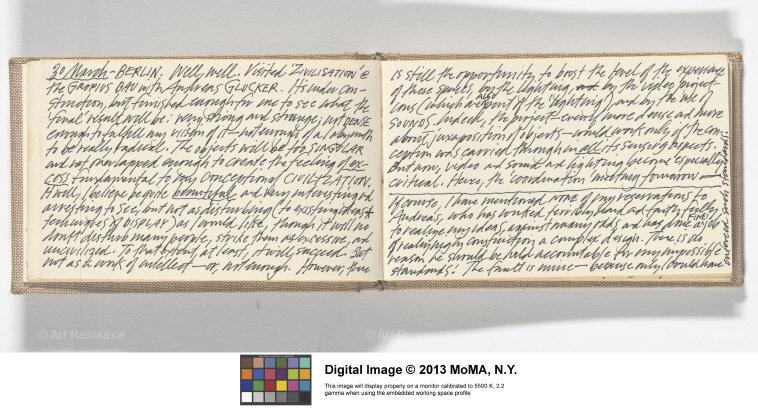 30 March - BERLIN. Well, well. Visited 'ZIVILISATION' @
the GROPIUS BAU with Andreas GLÜCKER. It is under con-
struction, but finished enough for me to see what the
final result will be: very strong and strange, not DENSE
enough to fulfill my vision of it - not enough of a labyrinth
to be really radical. The objects will be too SINGULAR
and not overlapped enough to create the feeling of ex-
cess fundamental to my conception of CIVILIZATION.
It will, I believe be quite beautiful and very interesting and
arresting to see, but not as disturbing (to existing ideas &
techniques of DISPLAY) as I would like, though it will no
doubt disturb many people, strike them as excessive, and
uncivilized. To that extent, at least, it will succeed. But
not as a work of intellect - or, not enough. However, there
is still the opportunity to boost the level of the experience
of these spaces, by the lighting, and by the video project-
ions (which are ALSO part of the 'lighting') and by the use of
SOUNDS. Indeed, the project - even more dense and more
about juxaposition of objects - would work only if the con-
ception was carried through in all its sensory aspects.
But now, video and sound and lighting become especially
critical. Hence, the 'coordination' meeting tomorrow -
Of course, I have mentioned none of my reservations to
Andreas, who has worked terribly hard and faithfully
to realize my ideas, against many odds and has done a FINE job
of realizing in construction a complex design. There is no
reason he should be held accountable for my impossible
standards! The fault is mine - because only I could have
enforced such standards.
© Art Resource
© Art Resource
Digital Image © 2013 MoMA, N.Y.
This image will display properly on a monitor calibrated to 5500 K, 2.2
gamma when using the embedded working space profile